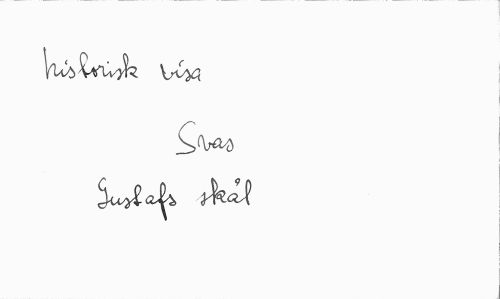 historisk visa
Svas
Gustafs skål